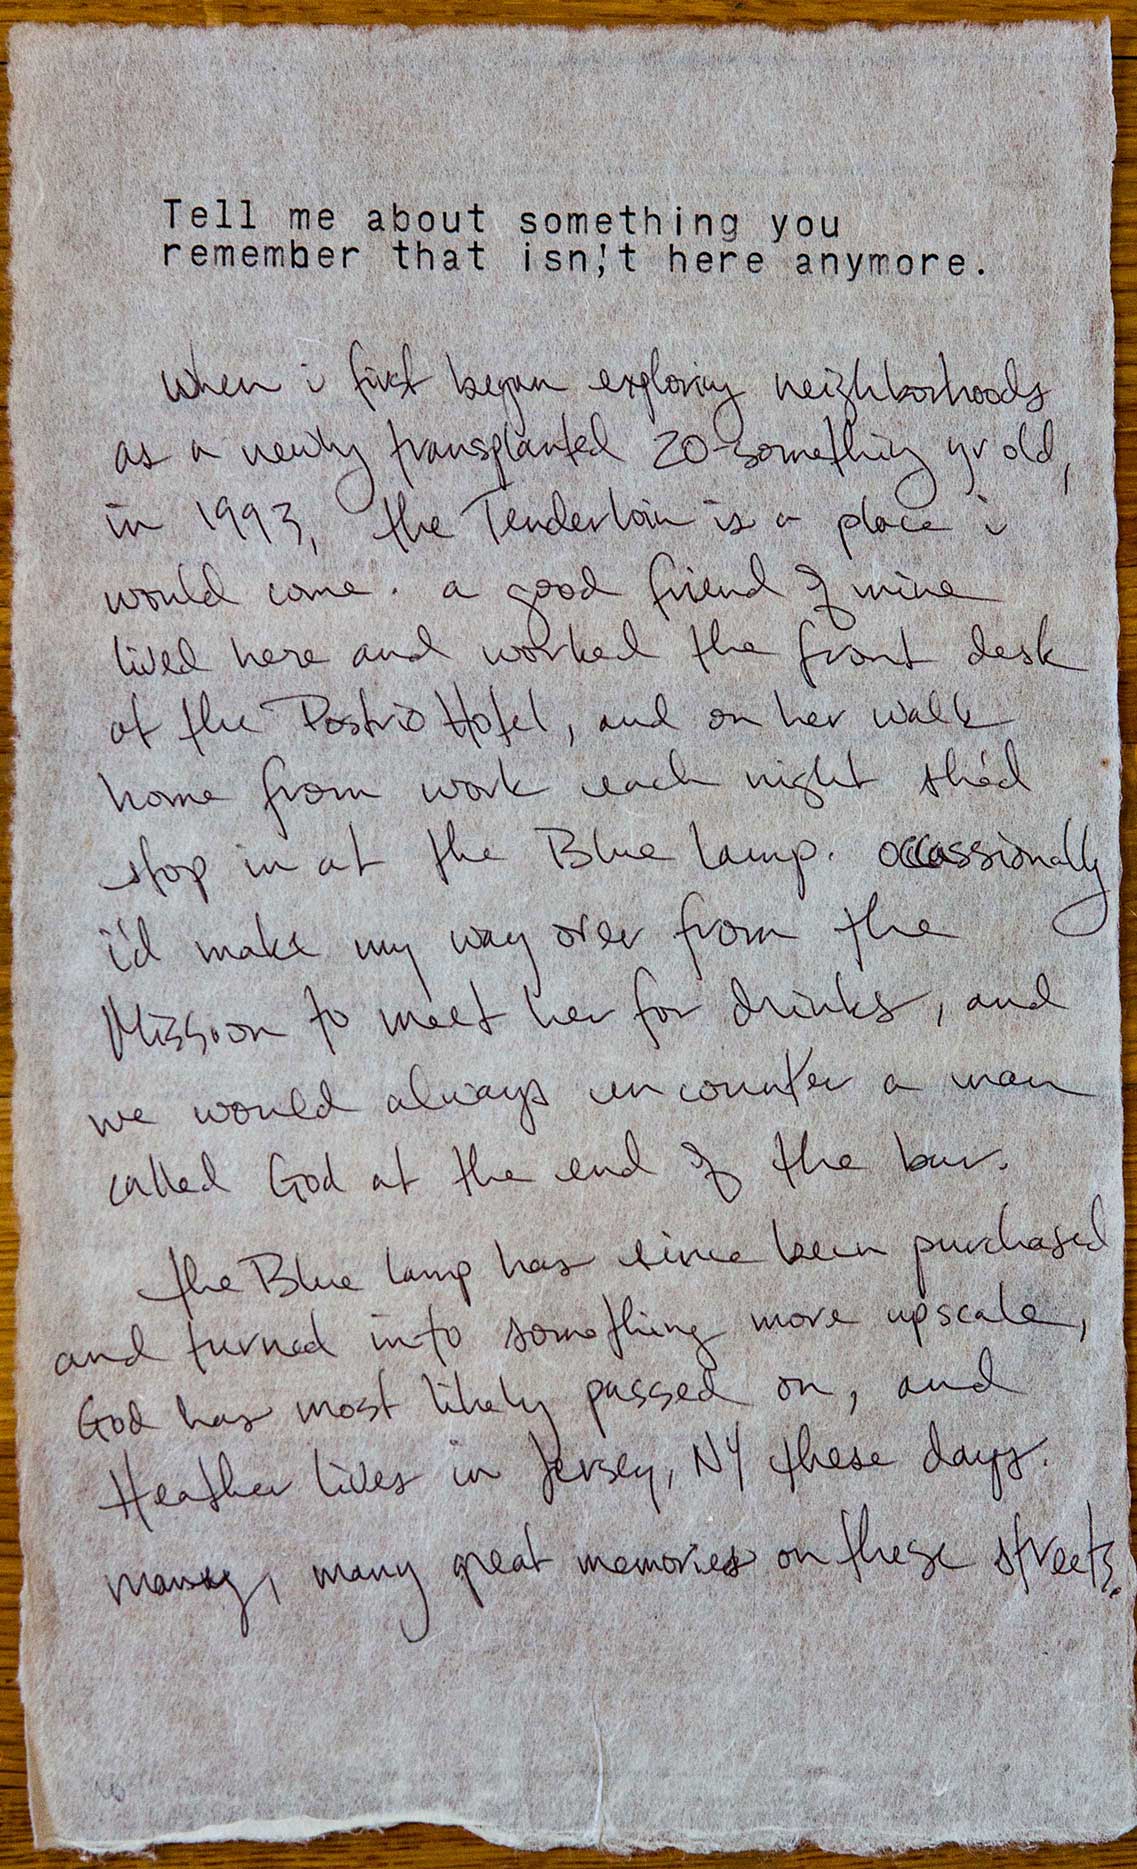 Tell me about something you
remember that isn;'t here anymore.
When i first began exploring neighborhoods
as a newly transplanted 20-something yr old,
in 1993, the Tenderloin is a place i
would come. a good friend of mine
lived here and worked the front desk
at the Postrio Hotel, and on her walk
home from work each night she'd
stop in at the Blue Lamp. occassionally
i'd make my way over from the
Mission to meet her for drinks, and
we would always encounter a man
called God at the end of the bar.
the Blue Lamp has since been purchased
and turned into something more upscale,
God has most likely passed on, and
Heather lives in Jersey, NY these days.
many, many great memories on these streets.